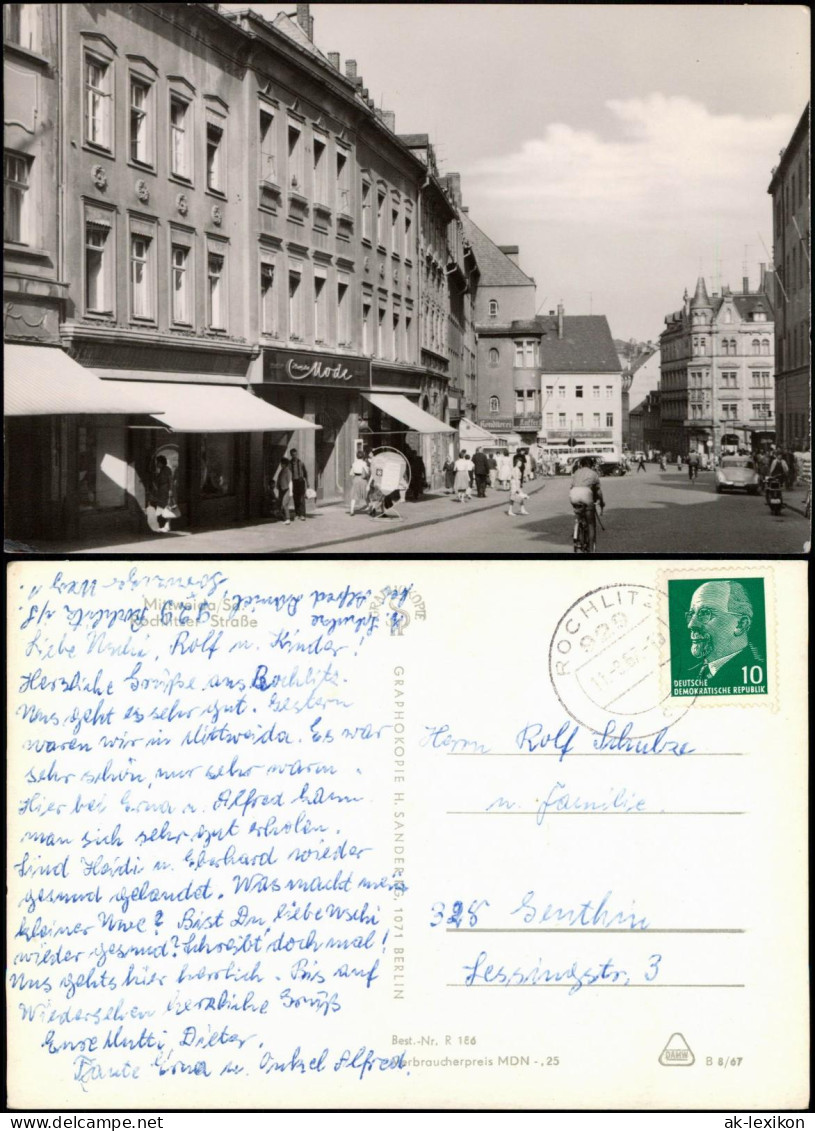 Mode
Mittweida/Sa.
Rochlitzer Straße
b. Alfred
929 Rochlitz i/S.
Liebe Uschi, Rolf u. Kinder!
Herzliche Grüße aus Rochlitz.
Uns geht es sehr gut. Gestern
waren wir in Mittweida. Es war
sehr schön, nur sehr warm.
Hier bei Erna u. Alfred kann
man sich sehr gut erholen.
Sind Heidi u. Eberhard wieder
gesund gelandet. Was macht mein
kleiner Uwe? Bist Du, liebe Uschi
wieder gesund? Schreibt doch mal!
Uns gehts hier herrlich. Bis auf
Wiedersehen herzliche Grüße
Eure Mutti, Dieter,
Tante Erna u. Onkel Alfred.
GRAPHOKOPIE
GRAPHOKOPIE H. SANDER KG, 1071 BERLIN
ROCHLITZ
929
DEUTSCHE
DEMOKRATISCHE REPUBLIK
10
Herrn Rolf Schulze
u. Familie.
328 Genthin
Lessingstr. 3
Best.-Nr. R 186
Verbraucherpreis MDN -,25
DAMW
B 8/67
ak-lexikon
www.ak-ansichtskarten.de
ak-lexikon